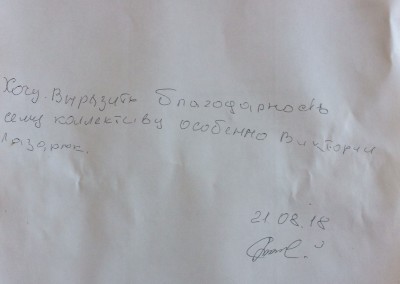 Хочу Выразить благодарность
сему коллективу особенно Виктории
Лазарюк.
21.08.18